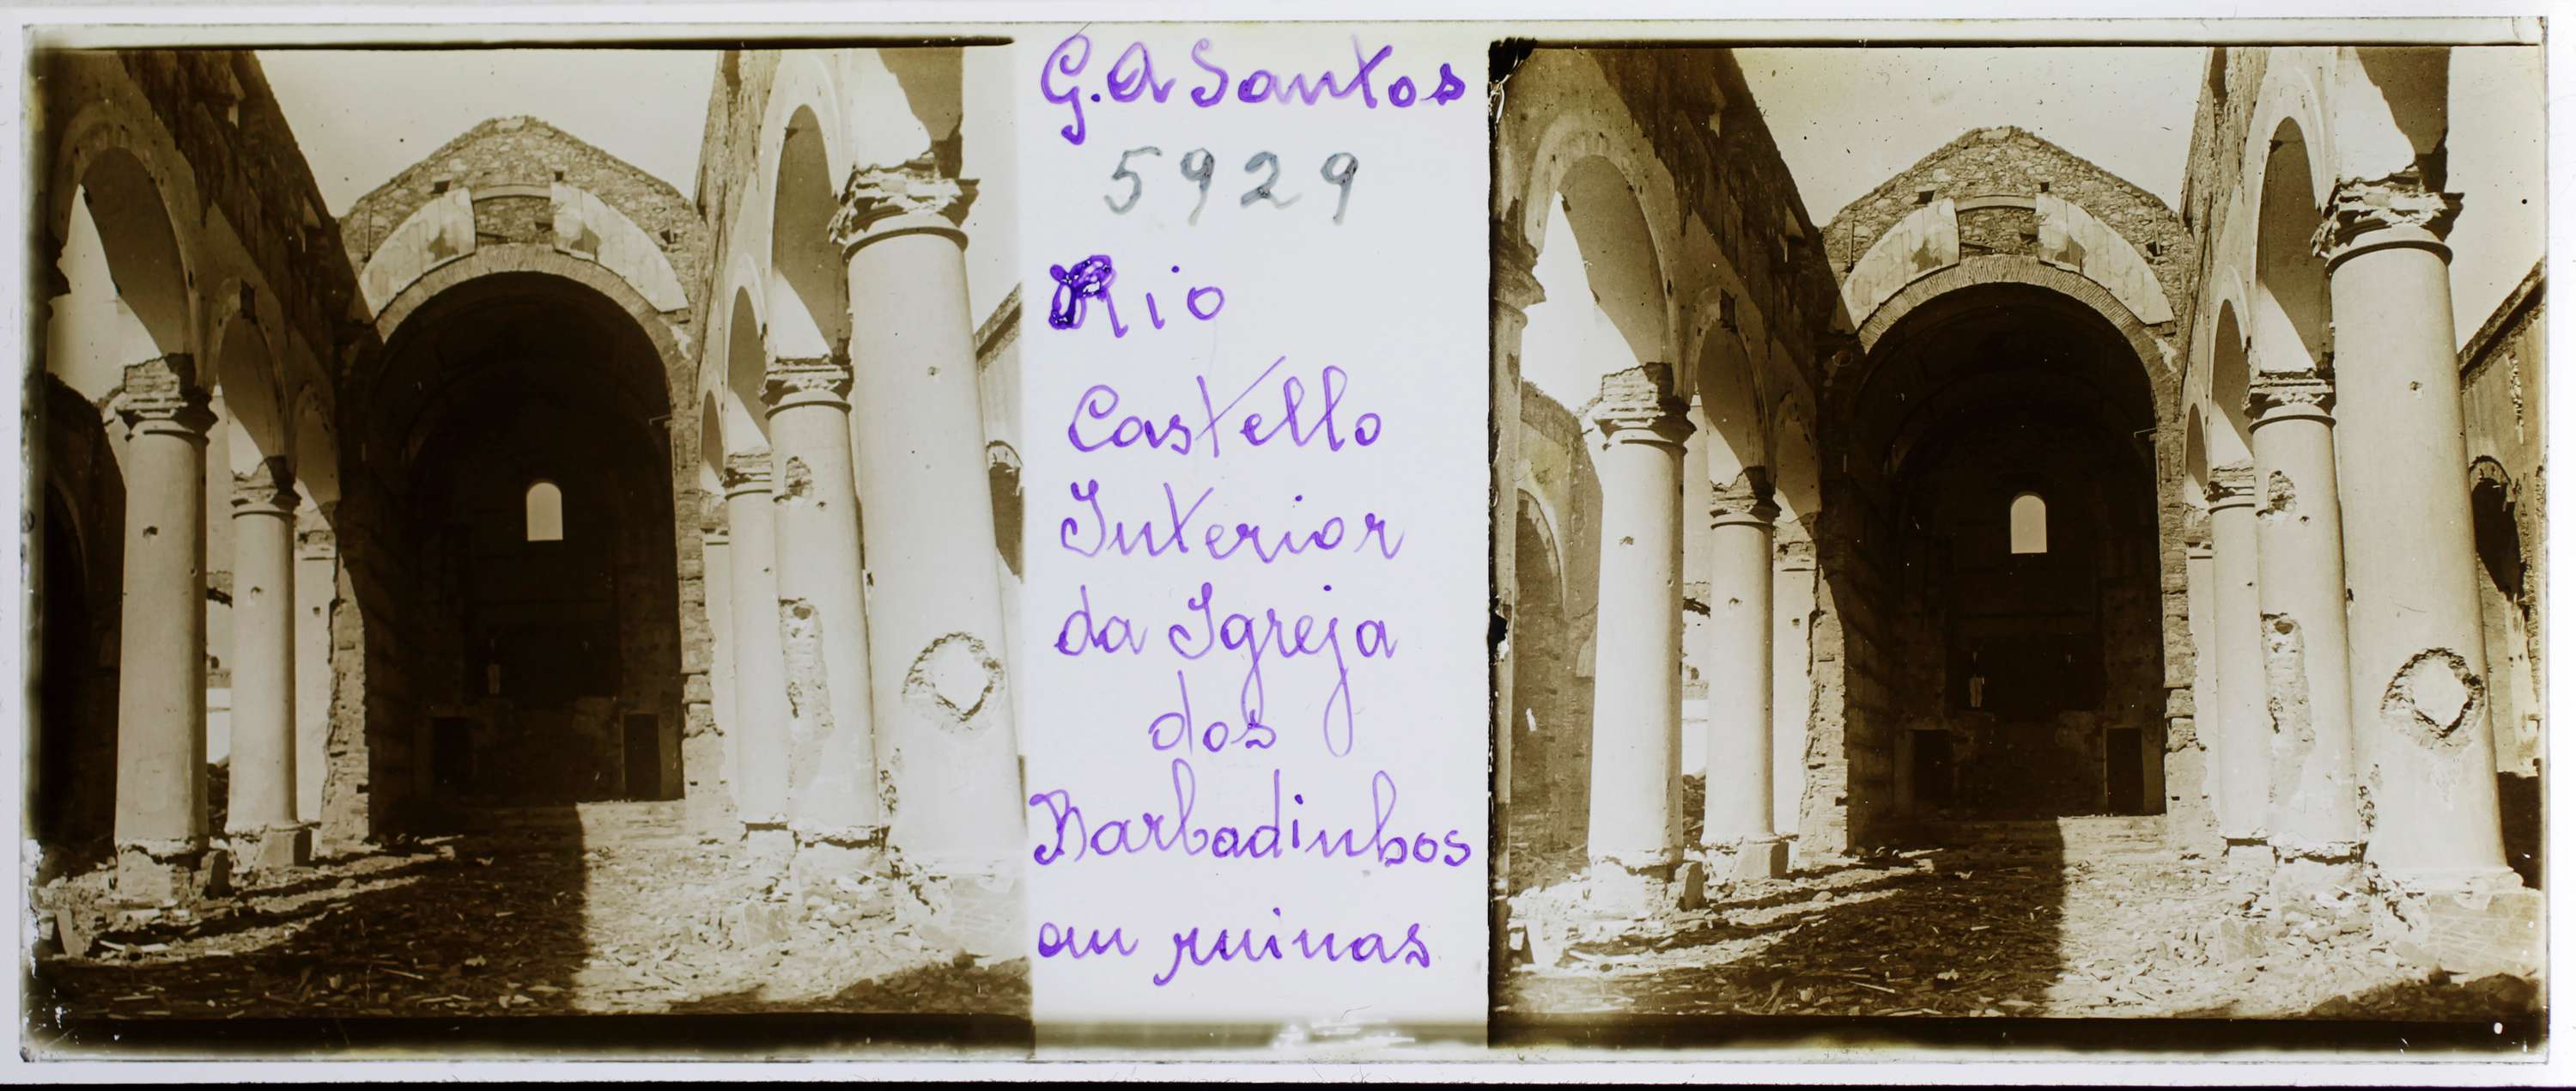 G. A Santos
5929
Rio
Castello
Interior
da Igreja
dos
Barbadinhos
em ruinas